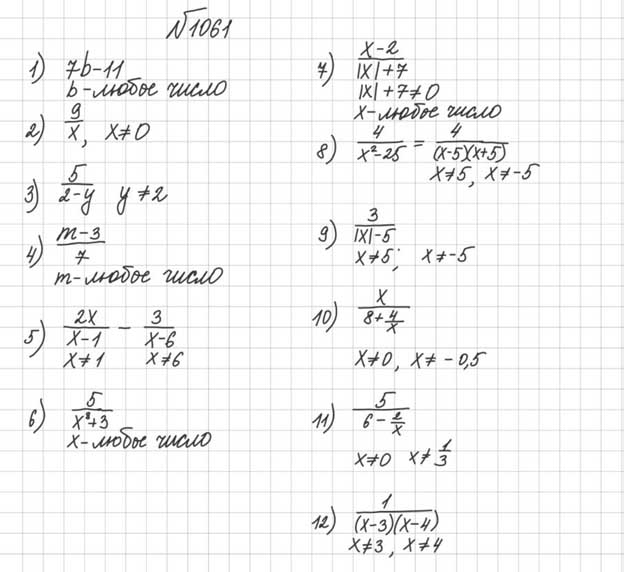 №1061
1) 7b-11
b-любое число
2) 9/x, x≠0
3) 5/(2-y) y≠2
4) (m-3)/7
m-любое число
5) 2x/(x-1) - 3/(x-6)
x≠1 x≠6
6) 5/(x⁸+3)
x-любое число
7) (x-2)/(|x|+7)
|x|+7≠0
x-любое число
8) 4/(x²-25) = 4/((x-5)(x+5))
x≠5, x≠-5
9) 3/(|x|-5)
x≠5; x≠-5
10) x/(8+4/x)
x≠0, x≠-0,5
11) 5/(6-2/x)
x≠0 x≠1/3
12) 1/((x-3)(x-4))
x≠3, x≠4